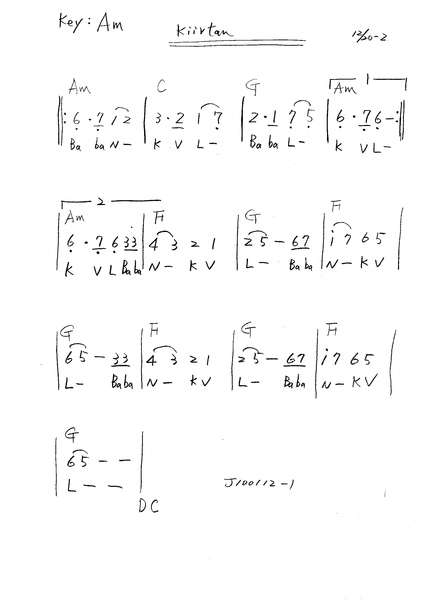 Key: Am Kiirtan 12/20-2
Am C G 1 Am
‖: 6 · 7 1 2 | 3 · 2 1 7 | 2 · 1 7 5 | 6 · 7 6 - :‖
Ba ba N - K V L - Ba ba L - K V L -
2
Am F G F
6 · 7 6 33 | 4 3 2 1 | 2 5 - 67 | i 7 6 5 |
K V L Baba N - K V L - Baba N - K V
G F G F
6 5 - 33 | 4 3 2 1 | 2 5 - 67 | i 7 6 5 |
L - Baba N - K V L - Baba N - K V
G
6 5 - - |
L - -
DC J100112-1